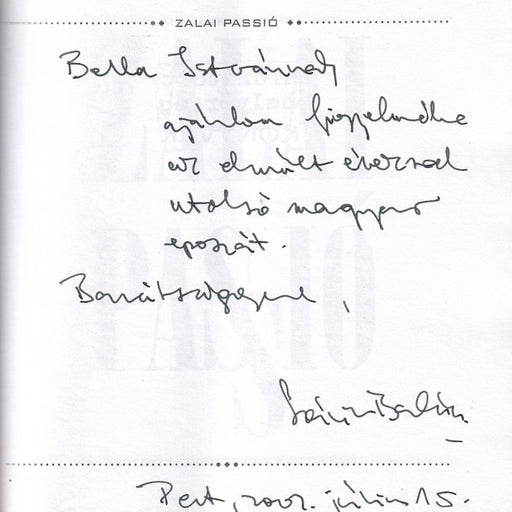 ZALAI PASSIÓ
Bella Istvánnak
ajánlom figyelmébe
az elmúlt évezred
utolsó magyar
eposzát.
Barátsággal,
Pest, 2002. július 15.